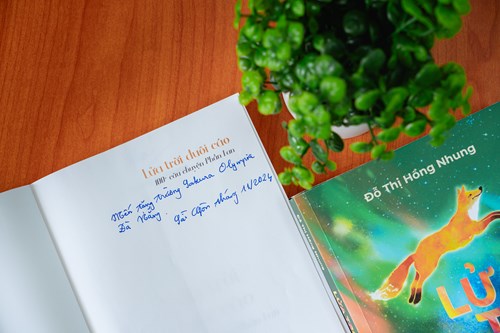 Lửa trời đuôi cáo
câu chuyện Phần Lan
Mến tặng trường Sakura Olympia
Đà Nẵng. Sài Gòn tháng 11/2024
Đỗ Thị Hồng Nhung
LỬ